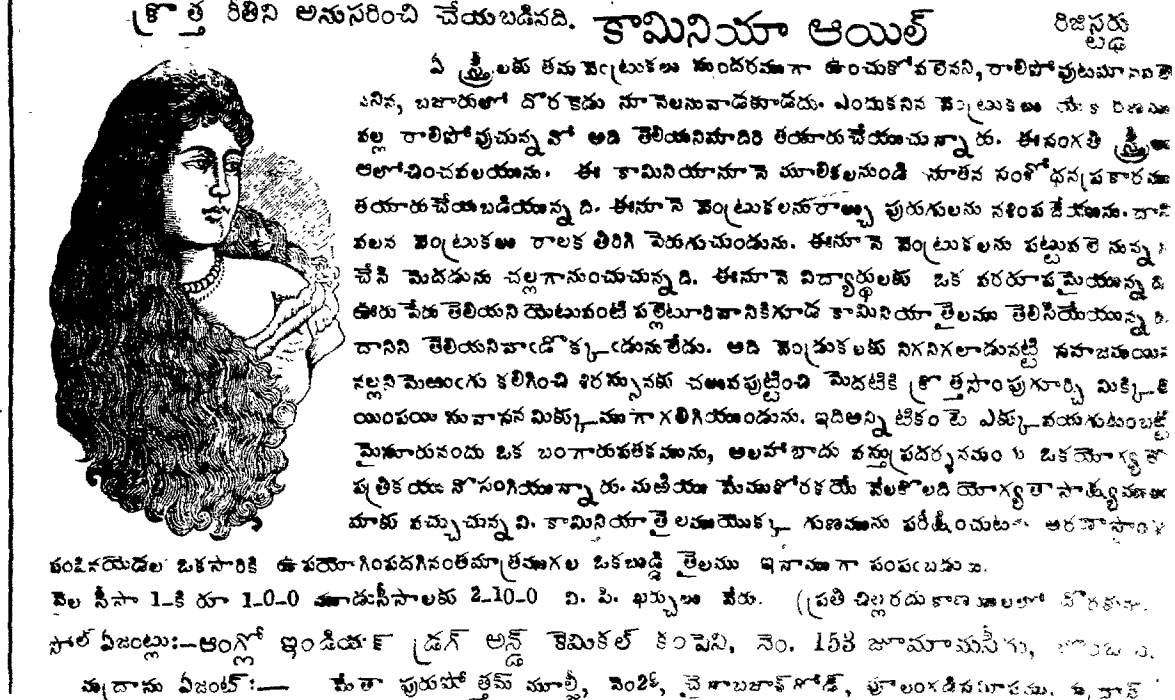 క్రొత్త రీతిని అనుసరించి చేయబడినది. కామినియా ఆయిల్ రిజిస్టర్డు
ఏ స్త్రీలకు తమ వెంట్రుకలు సుందరముగా ఉంచుకోవలెనని, రాలిపోవుటమానవలె
ననిన, బజారులో దొరకెడు నూనెలనువాడకూడదు. ఎందుకనిన వెంట్రుకలు
వల్ల రాలిపోవుచున్నవో అది తెలియనిమాదిరి తయారుచేయుచున్నారు. ఈసంగతి స్త్రీలు
ఆలోచించవలయును. ఈ కామినియానూనె మూలికలనుండి నూతన సంశోధనప్రకారము
తయారుచేయబడియున్నది. ఈనూనె వెంట్రుకలనురాల్చు పురుగులను నశింపజేయును. దాని
వలన వెంట్రుకలు రాలక తిరిగి పెరుగుచుండును. ఈనూనె వెంట్రుకలను పట్టువలె నున్నగ
చేసి మెదడును చల్లగానుంచుచున్నది. ఈనూనె విద్యార్థులకు ఒక వరరూపమైయున్నది
ఊరు పేరు తెలియని యెటువంటి పల్లెటూరివానికిగూడ కామినియా తైలము తెలిసియేయున్నది.
దానిని తెలియనివాఁడొక్కఁడునులేడు. అది వెండ్రుకలకు నిగనిగలాడునట్టి సహజమయిన
నల్లనిమెఱుఁగు కలిగించి శిరస్సునకు చలువపుట్టించి మెదటికి క్రొత్తసొంపుగూర్చి మిక్కిలి
యింపయి సువాసన మిక్కుముగా గలిగియుండును. ఇదిఅన్నిటికంటె ఎక్కువయగుటంబట్టి
మైసూరునందు ఒక బంగారుపతకమును, అలహాబాదు వస్తుప్రదర్శనమందు ఒకయోగ్యతా
పత్రికయు నొసంగియున్నారు. మఱియు మేముకోరకయే వేలకొలది యోగ్యతాసాక్ష్యములు
మాకు వచ్చుచున్నవి. కామినియాతైలముయొక్క గుణమును పరీక్షించుటకు అరణాస్టాంపు
పంపినయెడల ఒకసారికి ఉపయోగింపదగినంతమాత్రముగల ఒకబుడ్డి తైలము ఇనాముగా పంపఁబడును.
వెల సీసా 1-కి రూ 1-0-0 మూడుసీసాలకు 2-10-0 వి. పి. ఖర్చులు వేరు. (ప్రతి చిల్లరదుకాణములలో దొరకును.
సోల్ ఏజంట్లు:—ఆంగ్లో ఇండియన్ డ్రగ్ అన్డ్ కెమికల్ కంపెని, నెం. 153 జూమామసీదు, బొంబాయి.
మద్రాసు ఏజంట్:— మేతా పురుషోత్తమ్ మూల్జీ,